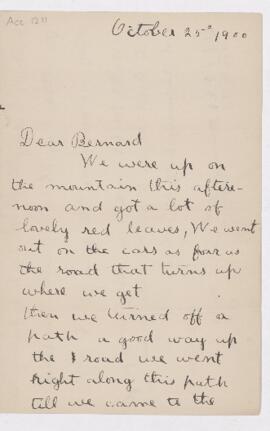 Acc 1211
October 25º 1900
Dear Bernard
We were up on
the mountain this after-
noon and got a lot of
lovely red leaves, We went
out on the cars as far as
the road that turns up
where we get
then we turned off a
path a good way up
the road we went
right along this path
till we came to the